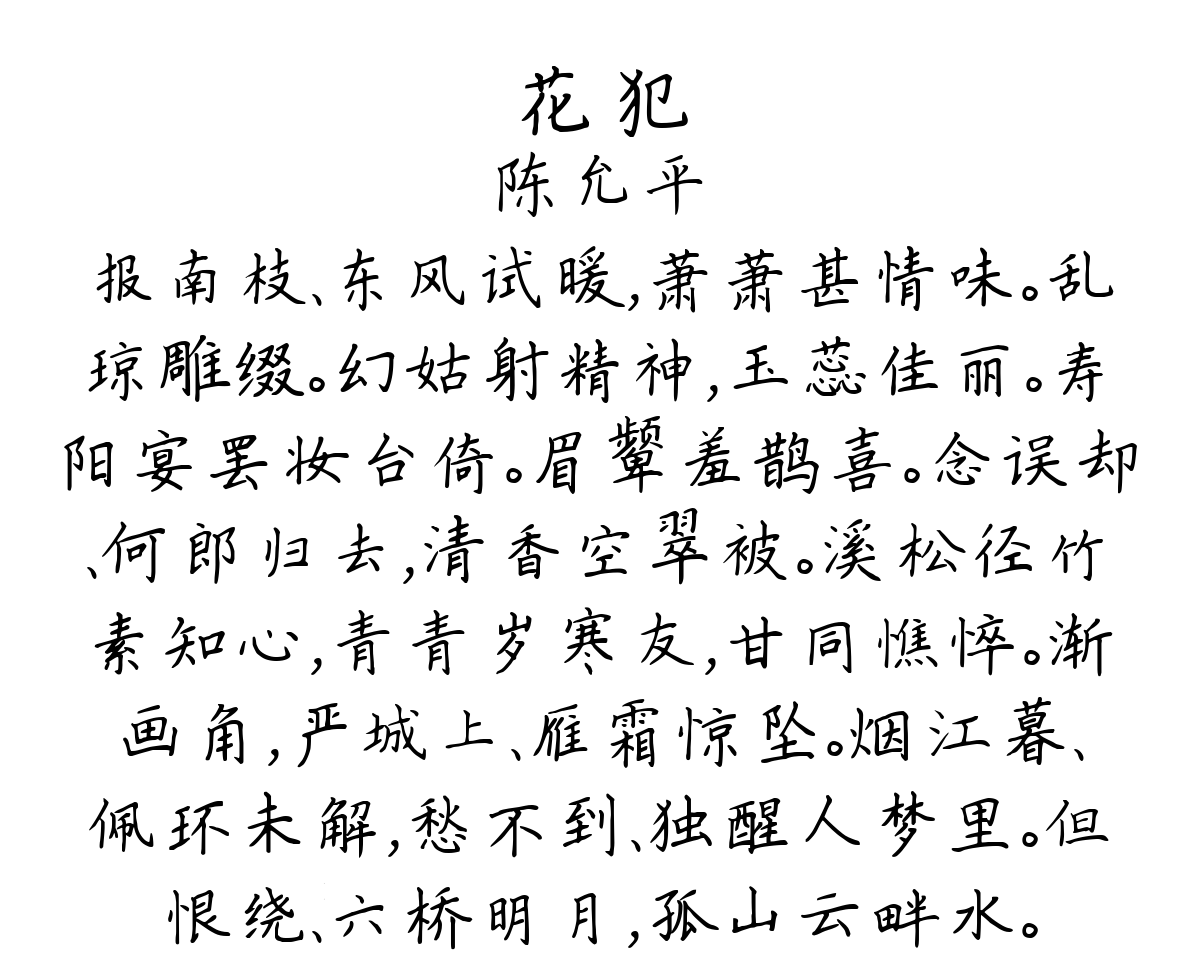 花犯
陈允平
报南枝、东风试暖,萧萧甚情味。乱
琼雕缀。幻姑射精神,玉蕊佳丽。寿
阳宴罢妆台倚。眉颦羞鹊喜。念误却
、何郎归去,清香空翠被。溪松径竹
素知心,青青岁寒友,甘同憔悴。渐
画角,严城上、雁霜惊坠。烟江暮、
佩环未解,愁不到、独醒人梦里。但
恨绕、六桥明月,孤山云畔水。